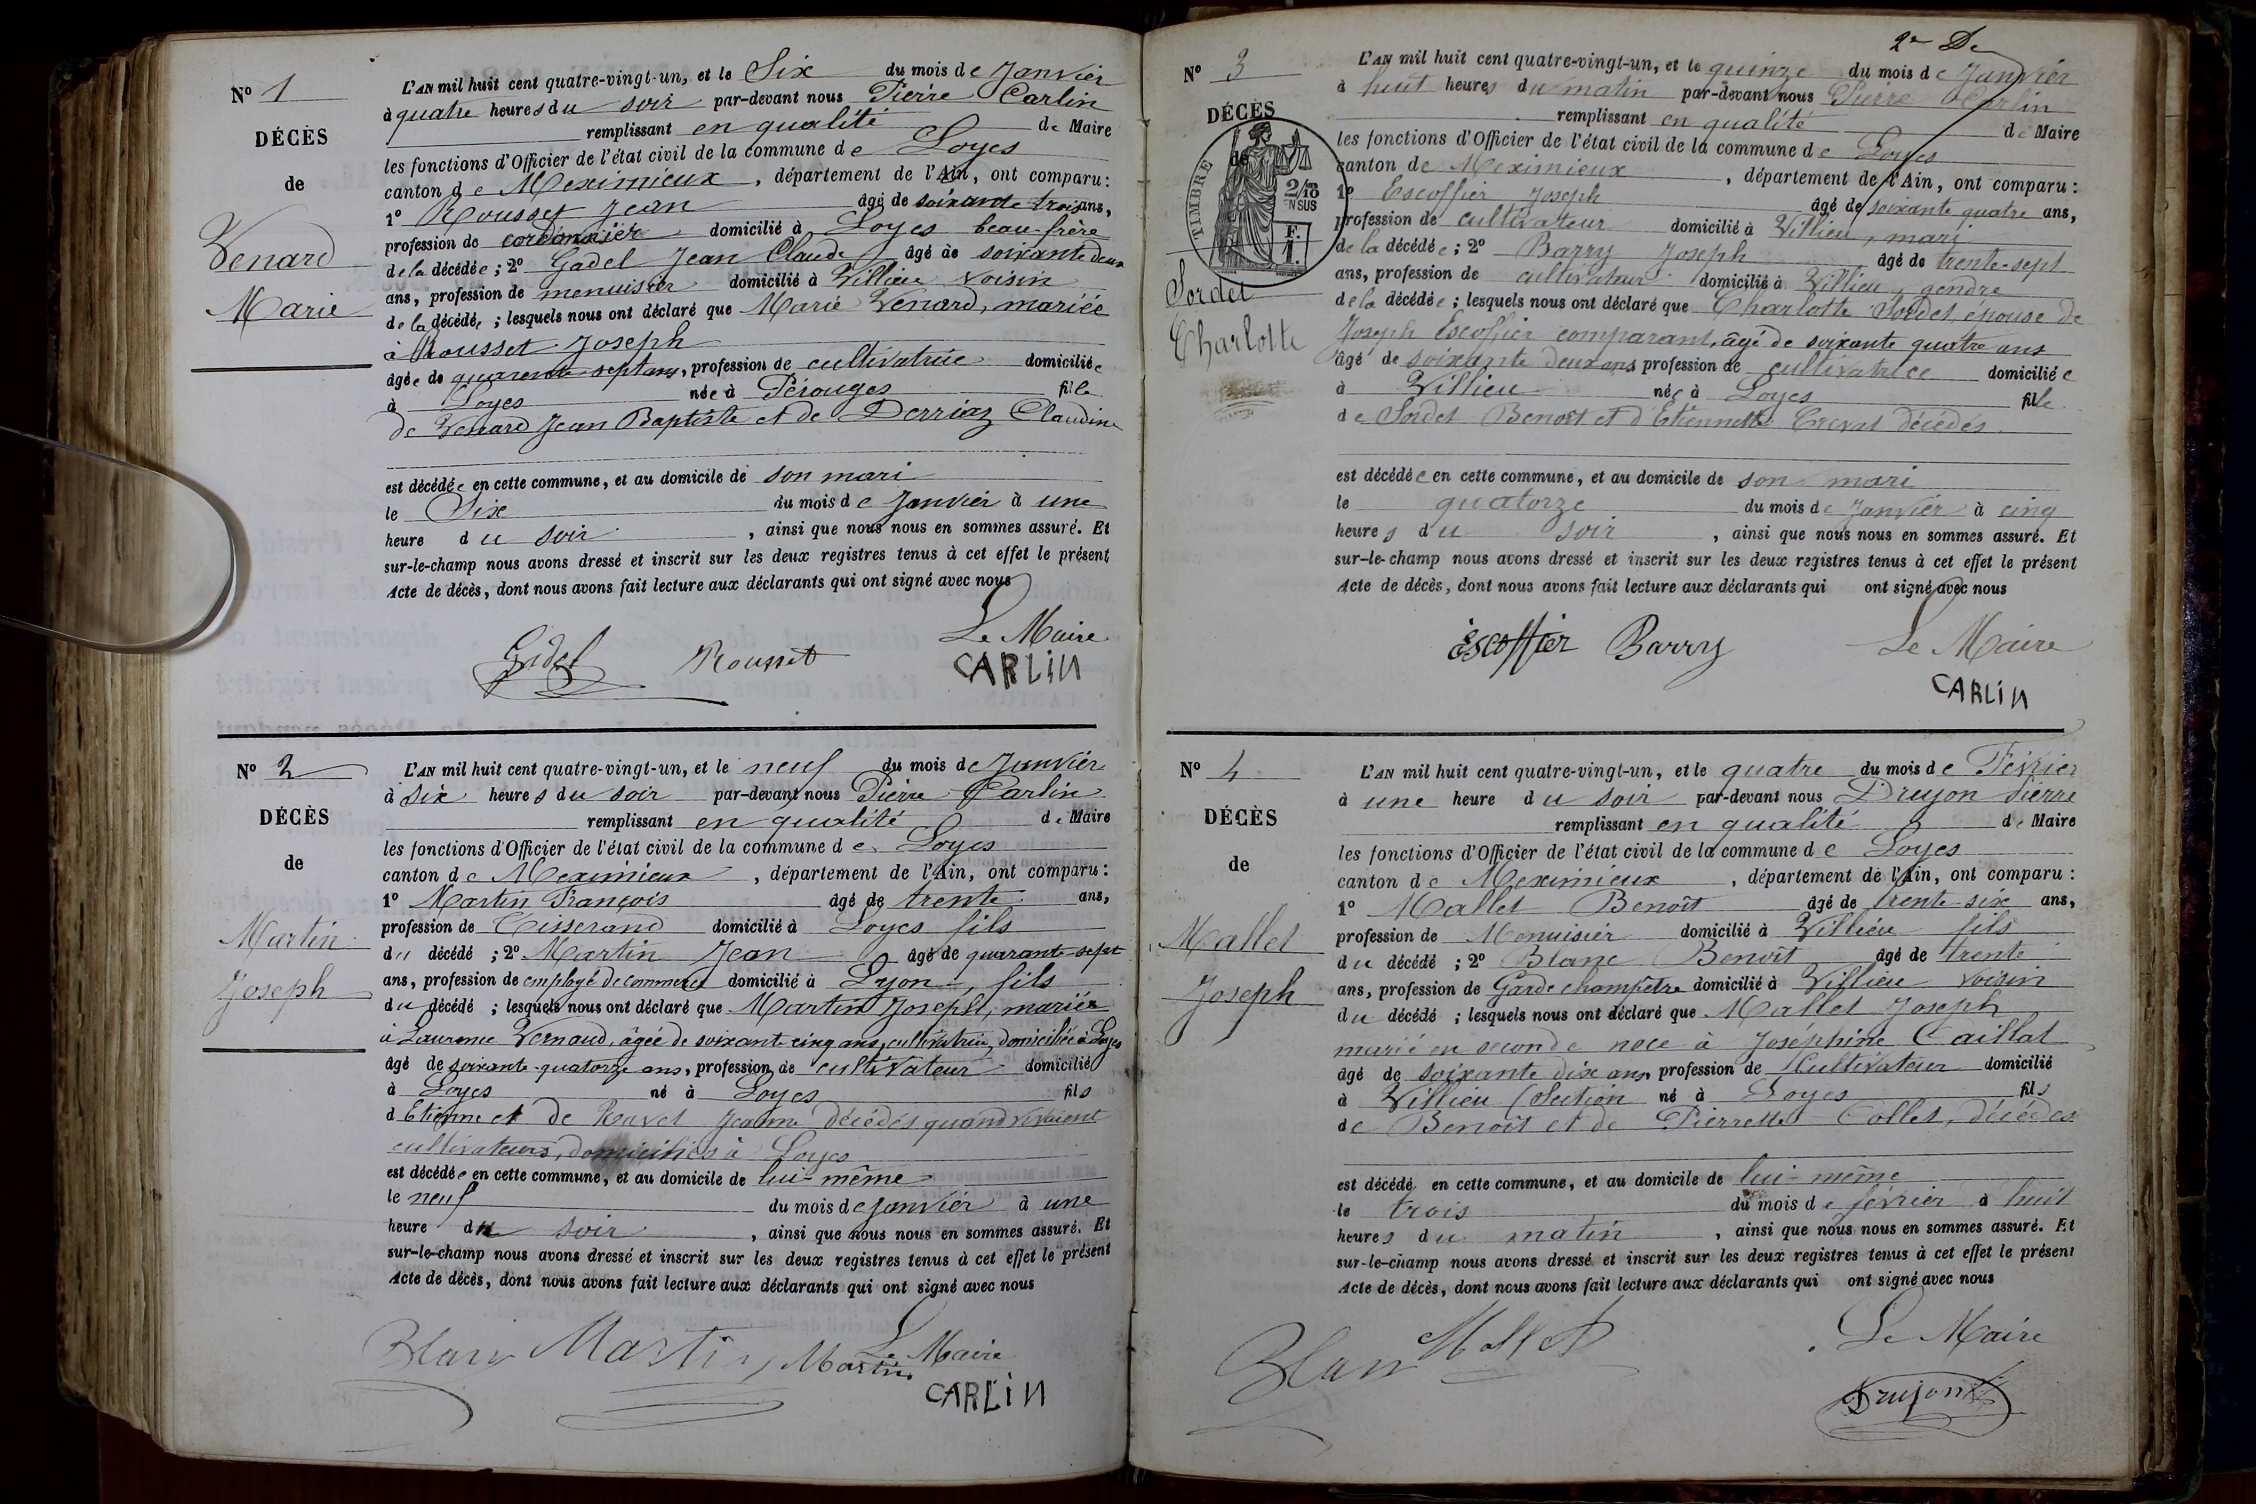 N° 1
DÉCÈS
de
Venard
Marie
L'AN mil huit cent quatre-vingt-un, et le Six du mois de Janvier
à quatre heures du soir par-devant nous Pierre Carlin
remplissant en qualité de Maire
les fonctions d'Officier de l'état civil de la commune de Loyes
canton de Meximieux, département de l'Ain, ont comparu:
1° Rousset Jean âgé de soixante trois ans,
profession de cordonnier domicilié à Loyes beau-frère
de la décédée; 2° Gadel Jean Claude âgé de soixante deux
ans, profession de menuisier domicilié à Villieu voisin
de la décédée; lesquels nous ont déclaré que Marie Venard, mariée
à Rousset Joseph
âgée de quarente-sept ans, profession de cultivatrice domiciliée
à Loyes née à Pérouges fille
de Venard Jean Baptiste et de Derriaz Claudine
est décédée en cette commune, et au domicile de son mari
le Six du mois de Janvier à une
heure du soir, ainsi que nous nous en sommes assuré. Et
sur-le-champ nous avons dressé et inscrit sur les deux registres tenus à cet effet le présent
Acte de décès, dont nous avons fait lecture aux déclarants qui ont signé avec nous
Le Maire
Gadel Rousset CARLIN
N° 2
DÉCÈS
de
Martin
Joseph
L'AN mil huit cent quatre-vingt-un, et le neuf du mois de Janvier
à six heures du soir par-devant nous Pierre Carlin
remplissant en qualité de Maire
les fonctions d'Officier de l'état civil de la commune de Loyes
canton de Meximieux, département de l'Ain, ont comparu:
1° Martin François âgé de trente ans,
profession de Tisserand domicilié à Loyes fils
du décédé; 2° Martin Jean âgé de quarante-sept
ans, profession de employé de commerce domicilié à Lyon, fils
du décédé; lesquels nous ont déclaré que Martin Joseph, mariée
à Laurence Vernaud, âgée de soixante cinq ans, cultivatrice, domiciliée à Loyes
âgé de soixante-quatorze ans, profession de cultivateur domicilié
à Loyes né à Loyes fils
d'Etienne et de Ravet Jeanne décédés quand vivaient
cultivateurs, domiciliés à Loyes
est décédée en cette commune, et au domicile de lui-même
le neuf du mois de janvier à une
heure du soir, ainsi que nous nous en sommes assuré. Et
sur-le-champ nous avons dressé et inscrit sur les deux registres tenus à cet effet le présent
Acte de décès, dont nous avons fait lecture aux déclarants qui ont signé avec nous
Blanc Martin Martin Le Maire
CARLIN
2e De
N° 3
DÉCÈS
de
TIMBRE
2/10 EN SUS
F. 1.
Sordet
Charlotte
L'AN mil huit cent quatre-vingt-un, et le quinze du mois de Janvier
à huit heures du matin par-devant nous Pierre Carlin
remplissant en qualité de Maire
les fonctions d'Officier de l'état civil de la commune de Loyes
canton de Meximieux, département de l'Ain, ont comparu:
1° Escoffier Joseph âgé de soixante quatre ans,
profession de cultivateur domicilié à Villieu, mari
de la décédée; 2° Barry Joseph âgé de trente-sept
ans, profession de cultivateur domicilié à Villieu, gendre
de la décédée; lesquels nous ont déclaré que Charlotte Sordet, épouse de
Joseph Escoffier comparant, âgé de soixante quatre ans
âgé de soixante deux ans profession de cultivatrice domiciliée
à Villieu née à Loyes fille
de Sordet Benoît et d'Etiennette décédés
est décédée en cette commune, et au domicile de son mari
le quatorze du mois de Janvier à cinq
heures du soir, ainsi que nous nous en sommes assuré. Et
sur-le-champ nous avons dressé et inscrit sur les deux registres tenus à cet effet le présent
Acte de décès, dont nous avons fait lecture aux déclarants qui ont signé avec nous
Escoffier Barry Le Maire
CARLIN
N° 4
DÉCÈS
de
Mallet
Joseph
L'AN mil huit cent quatre-vingt-un, et le quatre du mois de Février
à une heure du soir par-devant nous Drujon Pierre
remplissant en qualité de Maire
les fonctions d'Officier de l'état civil de la commune de Loyes
canton de Meximieux, département de l'Ain, ont comparu:
1° Mallet Benoît âgé de trente-six ans,
profession de Menuisier domicilié à Villieu fils
du décédé; 2° Blanc Benoît âgé de trente
ans, profession de Garde champêtre domicilié à Villieu voisin
du décédé; lesquels nous ont déclaré que Mallet Joseph
marié en seconde noce à Joséphine Caillat
âgé de soixante dix ans, profession de Cultivateur domicilié
à Villieu né à Loyes fils
de Benoît et de Pierrette Collet, décédés
est décédé en cette commune, et au domicile de lui-même
le trois du mois de février à huit
heures du matin, ainsi que nous nous en sommes assuré. Et
sur-le-champ nous avons dressé et inscrit sur les deux registres tenus à cet effet le présent
Acte de décès, dont nous avons fait lecture aux déclarants qui ont signé avec nous
Blanc Mallet Le Maire
Drujon